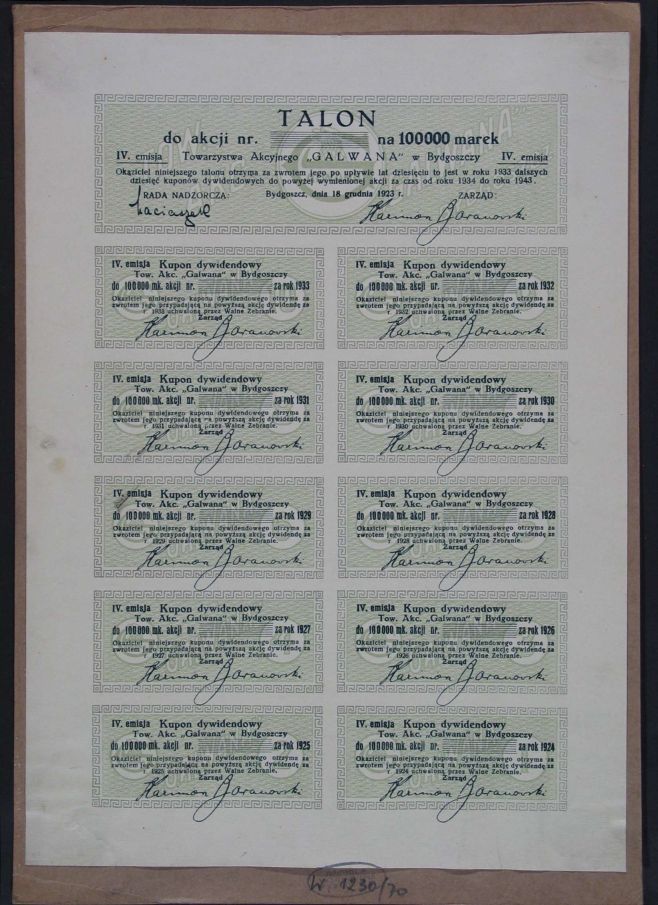 TALON
do akcji nr. na 100000 marek
IV. emisja Towarzystwa Akcyjnego „GALWANA" w Bydgoszczy IV. emisja
Okaziciel niniejszego talonu otrzyma za zwrotem jego po upływie lat dziesięciu to jest w roku 1933 dalszych
dziesięć kuponów dywidendowych do powyżej wymienionej akcji za czas od roku 1934 do roku 1943.
RADA NADZORCZA: Bydgoszcz, dnia 18 grudnia 1923 r. ZARZĄD:
IV. emisja Kupon dywidendowy
Tow. Akc. „Galwana" w Bydgoszczy
do 100000 mk. akcji nr. za rok 1933
Okaziciel niniejszego kuponu dywidendowego otrzyma za
zwrotem jego przypadającą na powyższą akcję dywidendę za
r 1933 uchwaloną przez Walne Zebranie.
Zarząd
IV. emisja Kupon dywidendowy
Tow. Akc. „Galwana" w Bydgoszczy
do 100000 mk. akcji nr. za rok 1932
Okaziciel niniejszego kuponu dywidendowego otrzyma za
zwrotem jego przypadającą na powyższą akcję dywidendę za
r 1932 uchwaloną przez Walne Zebranie.
Zarząd
IV. emisja Kupon dywidendowy
Tow. Akc. „Galwana" w Bydgoszczy
do 100000 mk. akcji nr. za rok 1931
Okaziciel niniejszego kuponu dywidendowego otrzyma za
zwrotem jego przypadającą na powyższą akcję dywidendę za
r 1931 uchwaloną przez Walne Zebranie.
Zarząd
IV. emisja Kupon dywidendowy
Tow. Akc. „Galwana" w Bydgoszczy
do 100000 mk. akcji nr. za rok 1930
Okaziciel niniejszego kuponu dywidendowego otrzyma za
zwrotem jego przypadającą na powyższą akcję dywidendę za
r 1930 uchwaloną przez Walne Zebranie.
Zarząd
IV. emisja Kupon dywidendowy
Tow. Akc. „Galwana" w Bydgoszczy
do 100000 mk. akcji nr. za rok 1929
Okaziciel niniejszego kuponu dywidendowego otrzyma za
zwrotem jego przypadającą na powyższą akcję dywidendę za
r 1929 uchwaloną przez Walne Zebranie.
Zarząd
IV. emisja Kupon dywidendowy
Tow. Akc. „Galwana" w Bydgoszczy
do 100000 mk. akcji nr. za rok 1928
Okaziciel niniejszego kuponu dywidendowego otrzyma za
zwrotem jego przypadającą na powyższą akcję dywidendę za
r 1928 uchwaloną przez Walne Zebranie.
Zarząd
IV. emisja Kupon dywidendowy
Tow. Akc. „Galwana" w Bydgoszczy
do 100000 mk. akcji nr. za rok 1927
Okaziciel niniejszego kuponu dywidendowego otrzyma za
zwrotem jego przypadającą na powyższą akcję dywidendę za
r 1927 uchwaloną przez Walne Zebranie.
Zarząd
IV. emisja Kupon dywidendowy
Tow. Akc. „Galwana" w Bydgoszczy
do 100000 mk. akcji nr. za rok 1926
Okaziciel niniejszego kuponu dywidendowego otrzyma za
zwrotem jego przypadającą na powyższą akcję dywidendę za
r 1926 uchwaloną przez Walne Zebranie.
Zarząd
IV. emisja Kupon dywidendowy
Tow. Akc. „Galwana" w Bydgoszczy
do 100000 mk. akcji nr. za rok 1925
Okaziciel niniejszego kuponu dywidendowego otrzyma za
zwrotem jego przypadającą na powyższą akcję dywidendę za
r 1925 uchwaloną przez Walne Zebranie.
Zarząd
IV. emisja Kupon dywidendowy
Tow. Akc. „Galwana" w Bydgoszczy
do 100000 mk. akcji nr. za rok 1924
Okaziciel niniejszego kuponu dywidendowego otrzyma za
zwrotem jego przypadającą na powyższą akcję dywidendę za
r 1924 uchwaloną przez Walne Zebranie.
Zarząd
W. 1230/70